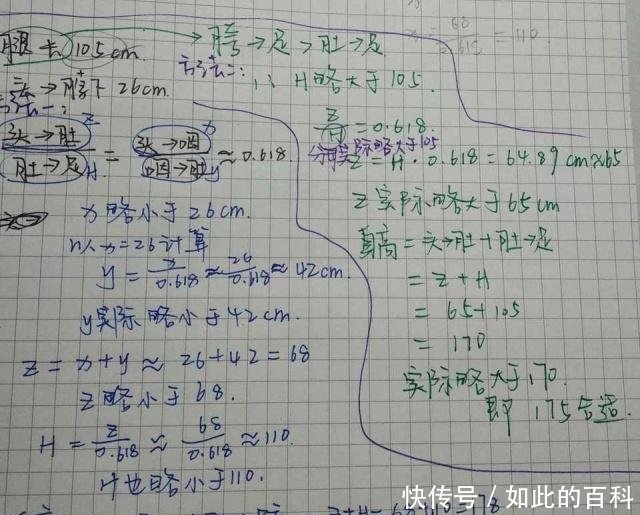 腿长 105cm
→胯→足>肚→足
头→脖下 26cm
方法一:
头→肚 z
肚→足 H
=
头→咽 x
咽→肚 y
≈0.618
x略小于26cm.
以x=26计算
y=x/0.618≈26/0.618≈42cm.
y实际略小于42cm.
z=x+y≈26+42=68
z略小于68.
H=z/0.618≈68/0.618≈110.
H也略小于110.
方法二: ∴H略大于105.
z/H=0.618
实际略大于105
z=H·0.618=64.89cm≈65
z实际略大于65cm
身高=头→肚+肚→足
=z+H
=65+105
=170
实际略大于170.
即175合适.
=110
快传号/如此的百科